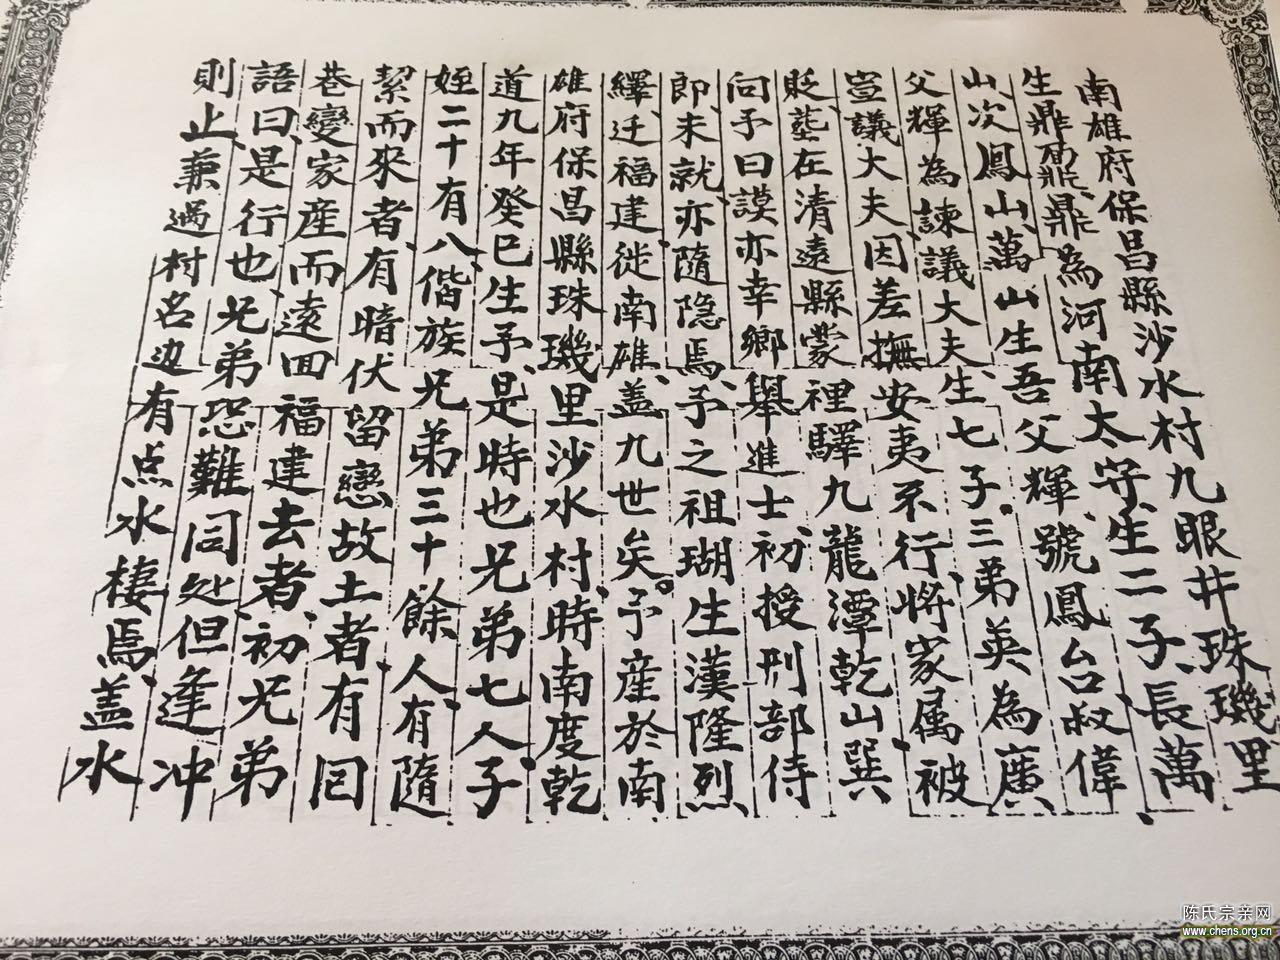 南雄府保昌縣沙水村九眼井珠璣里
生鼎鼐、鼎為河南太守、生二子、長萬
山、次鳳山、萬山生吾父輝號鳳台叔偉、
父輝為諫議大夫、生七子。三弟英為廣
豈議大夫因差撫安夷不行、將家属被
貶塟在清遠縣蒙裡驛九龍潭乾山巽
向予曰謨亦幸鄉舉進士、初授刑部侍
即、未就、亦隨隐焉、予之祖瑚生漢隆烈
繹迁福建徙南雄、盖九世矣。予産於南
雄府保昌縣珠璣里沙水村、時南度乾
道九年癸巳生予、是時也兄弟七人、子
姪二十有八、偕族兄弟三十餘人、有隨
絜而來者、有暗伏留戀故土者、有囘
巷變家産而遠囬福建去者、初兄弟
語曰、是行也、兄弟恐難同处、但逢冲
則止、兼過村名边有点水棲焉、盖水
陈氏宗亲网
www.chens.org.cn